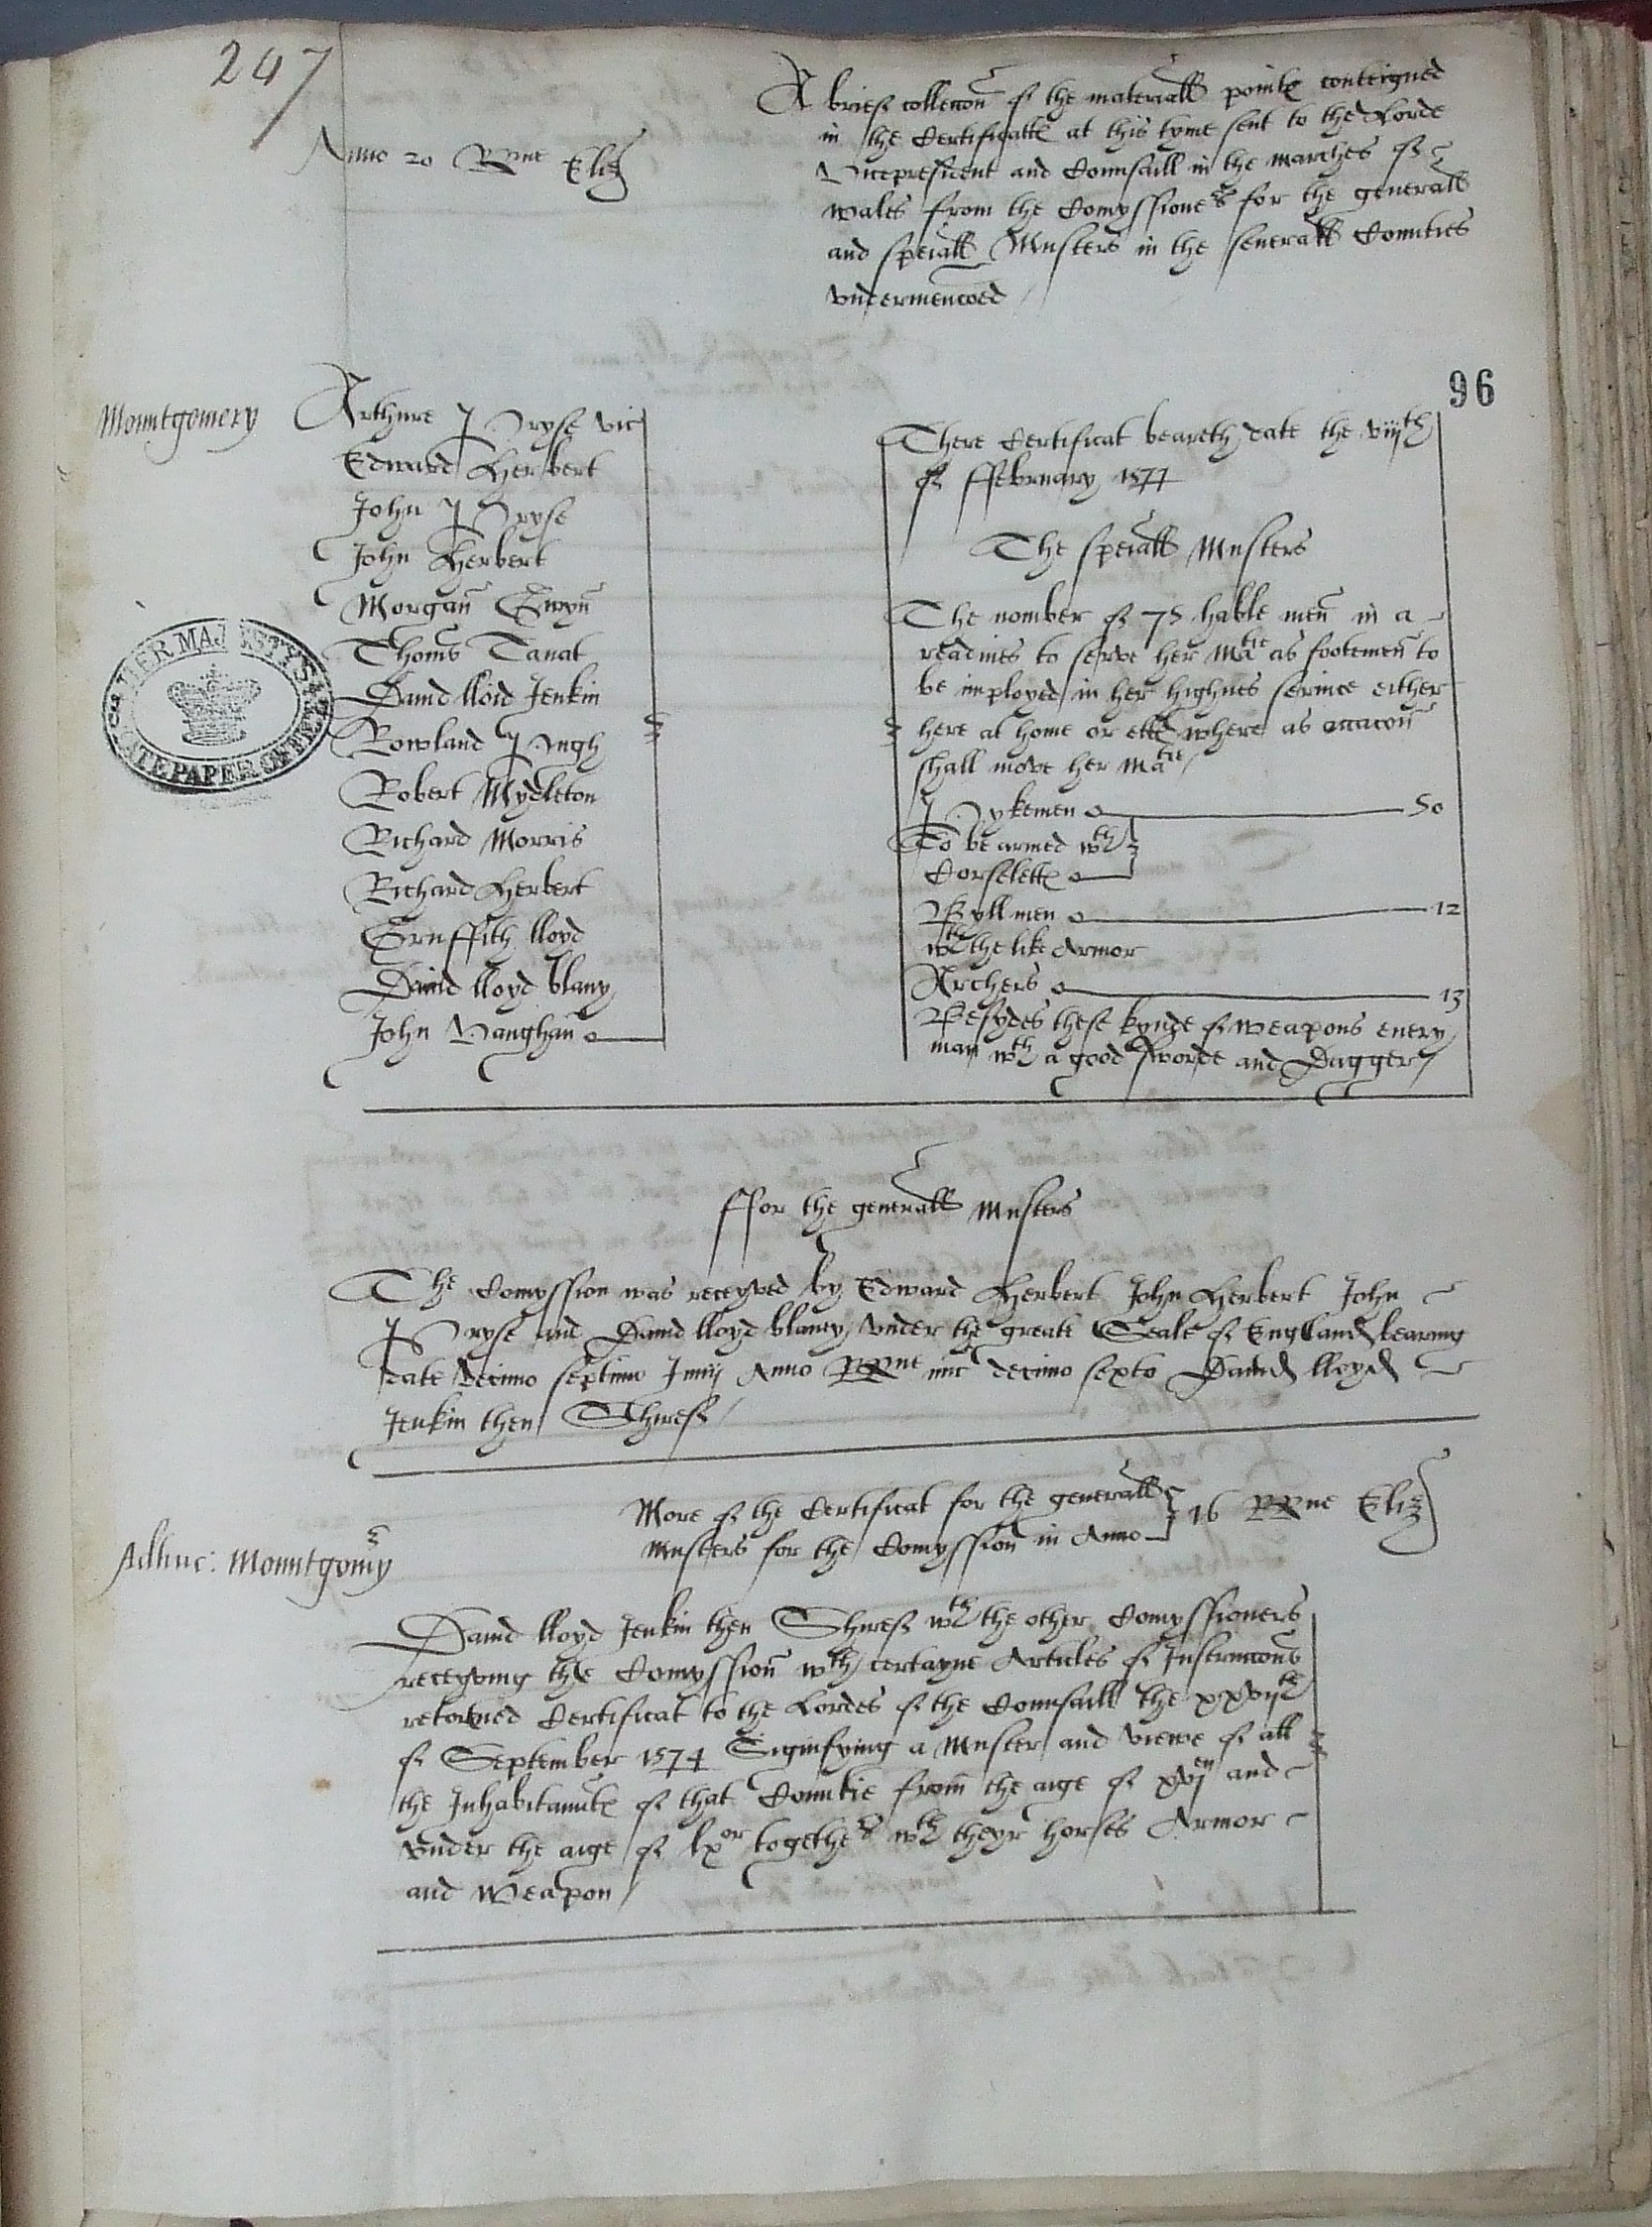 247
Anno 20 RRne Eliz
A brief colleccon of the materiall pointes conteigned
in the Certificattes at this tyme sent to the Lorde
Vicepresident and Counsaill in the marches of
wales from the Comyssioners for the generall
and speciall Musters in the severall Counties
vndermencoed
96
Mountgomery
Arthure Pryse vic
Edward Herbert
John Pryse
John Herbert
Morgan Gwyn
Thoms Tanat
Dauid lloid Jenkin
Rowland Pugh
Robert Mydleton
Richard Morris
Richard Herbert
Gruffith lloyd
Dauid lloyd blany
John Vaughan
There Certificat beareth date the viijth
of ffebruary 1577
The speciall Musters
The nomber of 75 hable men in a
readines to serve her Matie as footemen to
be imployed in her highnes seruice either
here at home or elles where as occacon
shall move her Matie
Pykemen 50
To be armed wth
Corselettes
Byll men 12
wth the like Armor
Archers 13
Besydes these kynde of weapons euery
man wth a good sworde and Dagger
ffor the generall Musters
The Comyssion was receyved by Edward Herbert John Herbert John
Pryse and Dauid lloyd blaney vnder the greate Seale of England bearing
date decimo septimo Junij Anno RRne nnc decimo sexto Dauid lloyd
Jenkin then Shiref
More of the Certificat for the generall
Musters for the Comyssion in Anno 16 RRne Eliz
Adhuc: Mountgomy
Dauid lloyd Jenkin then Shiref wth the other Comyssioners
receyving the Comyssion wth certayne Articles of Instruccons
retorned Certificat to the Lordes of the Counsaill the xxvijth
of September 1574 Signifying a Muster and viewe of all
the Inhabitauntes of that Countie from the aige of xvjen and
vnder the aige of lxor together wth theyr horses Armor
and weapon
HER MAJESTY'S STATE PAPER OFFICE